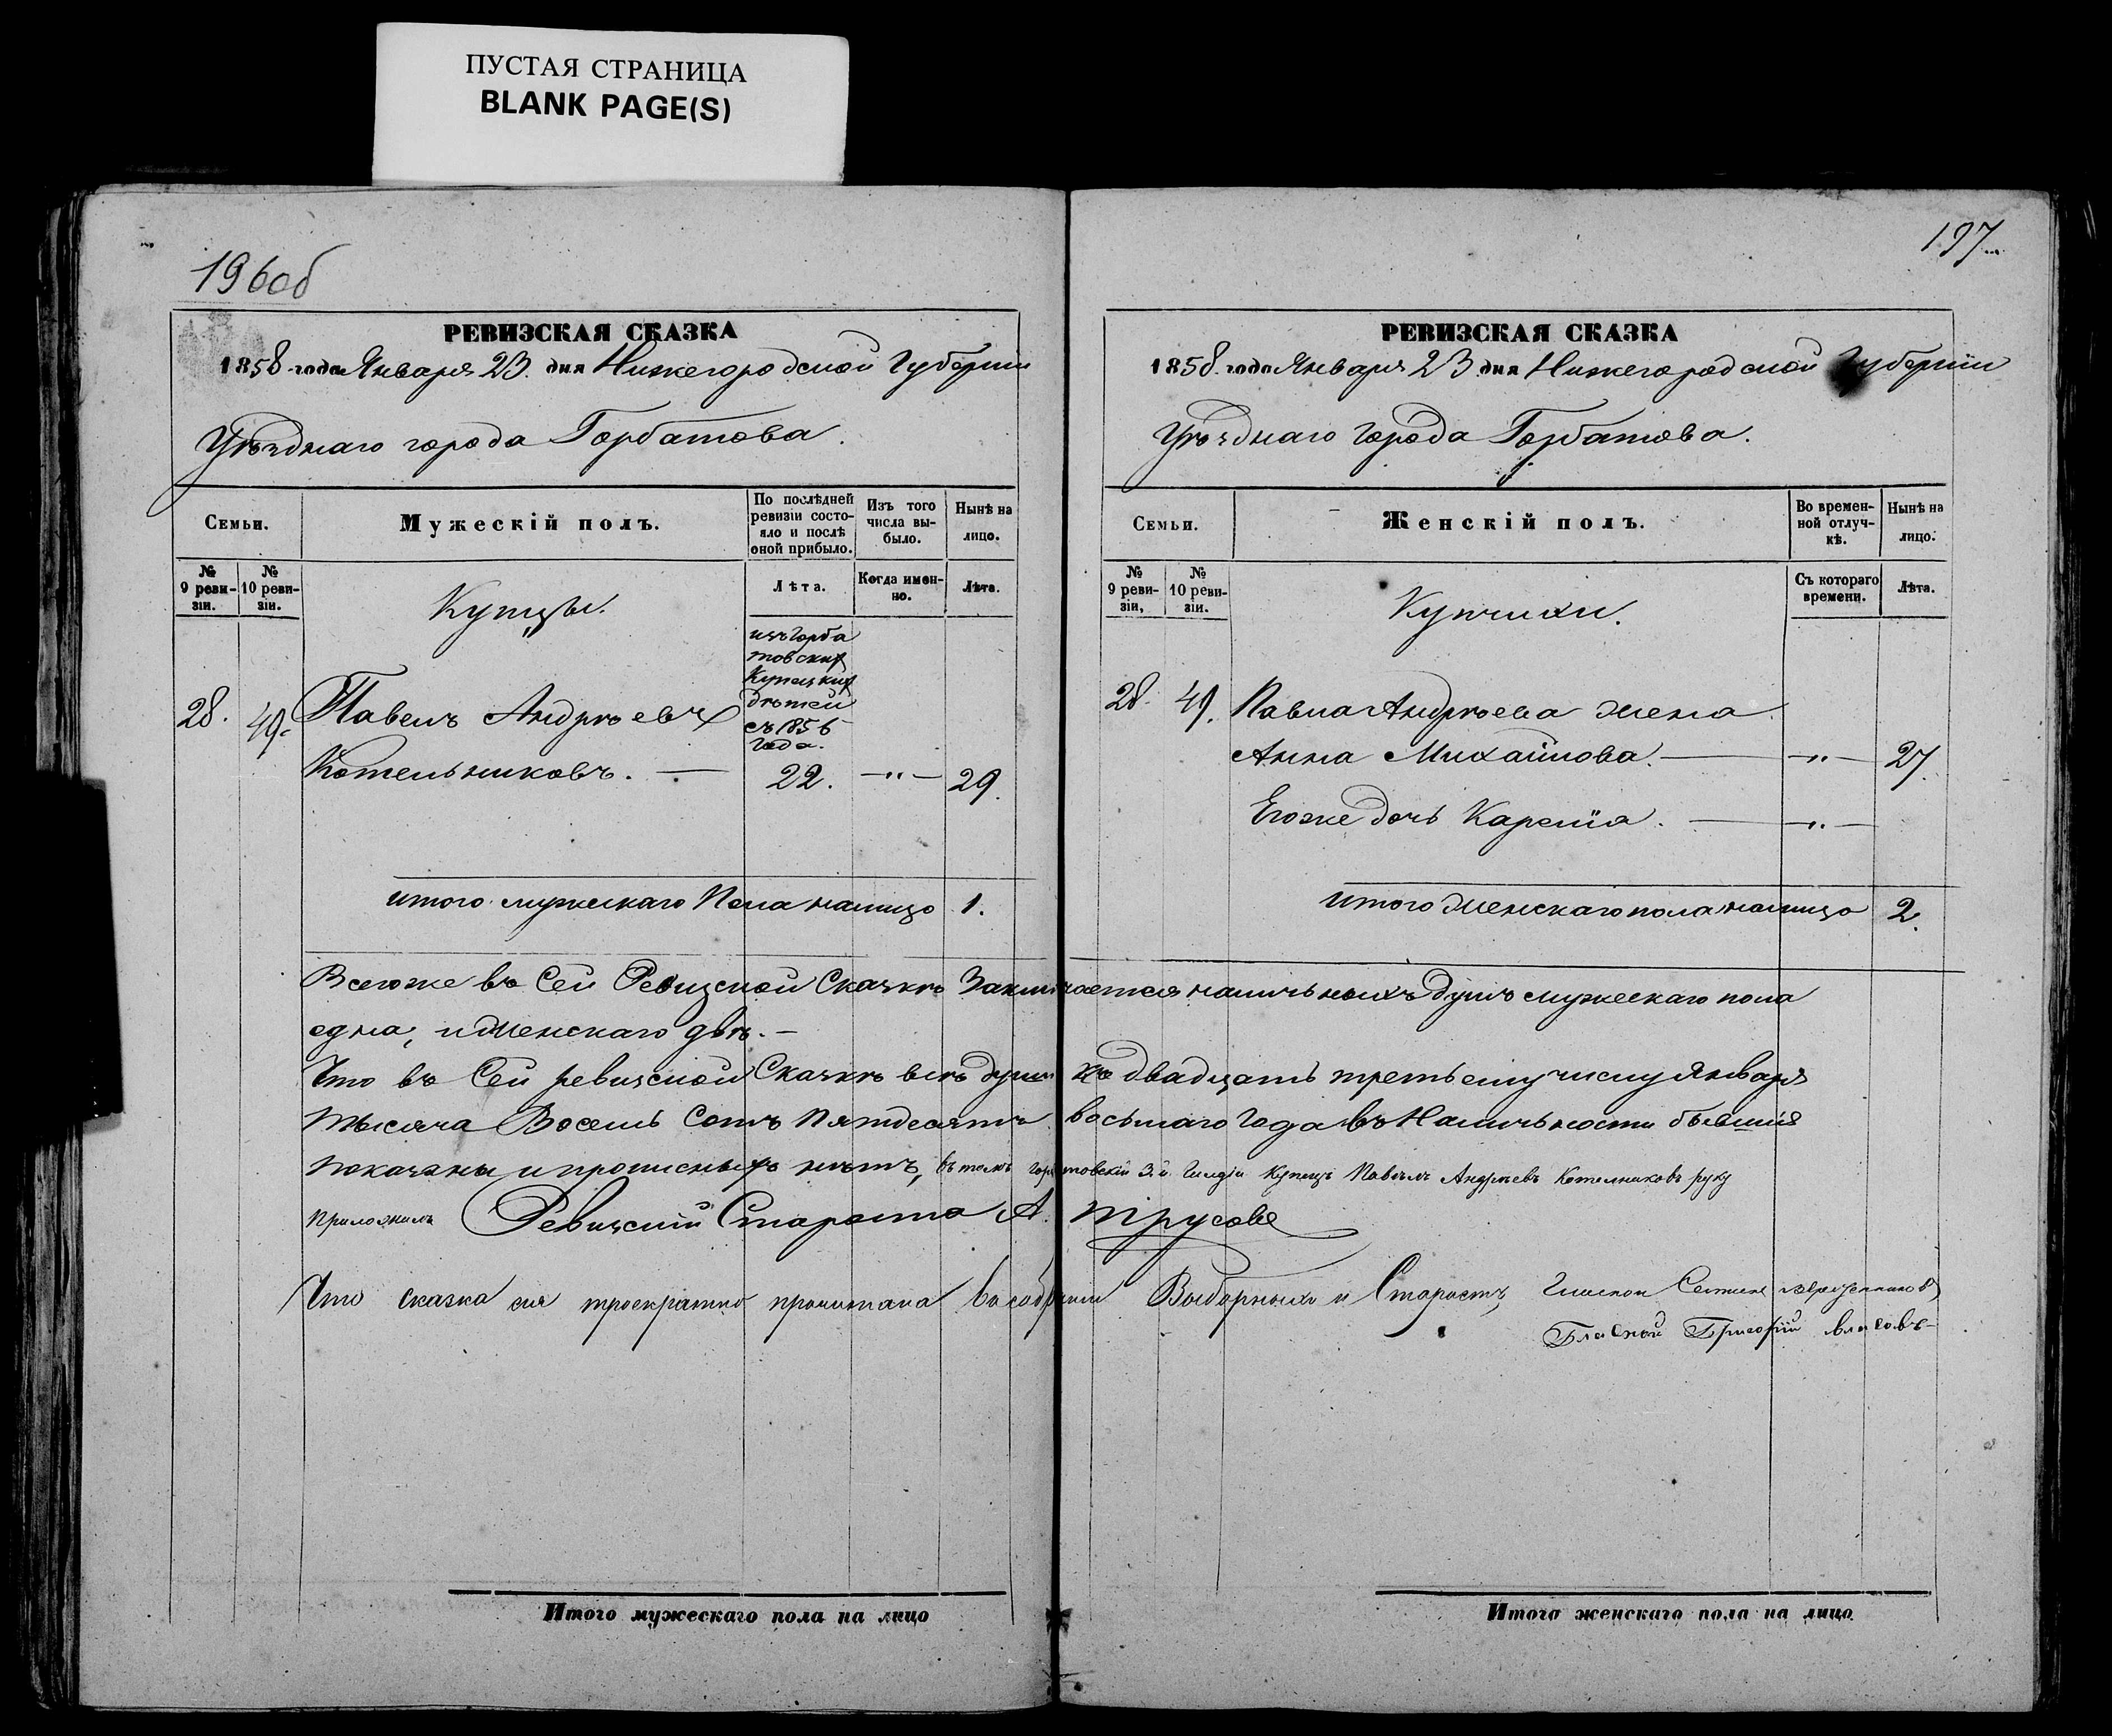 ПУСТАЯ СТРАНИЦА
BLANK PAGE(S)
196об
РЕВИЗСКАЯ СКАЗКА
1858 года Января 23. дня Нижегородской Губернии
Уѣзднаго города Горбатова.
Семьи.
Мужескій полъ.
По послѣдней ревизіи состояло и послѣ оной прибыло.
Изъ того числа выбыло.
Нынѣ на лицо.
№ 9 ревизіи.
№ 10 ревизіи.
Лѣта.
Когда именно.
Лѣта.
Купцы.
изъ Горба
товских
Купецких
дѣтей
съ 1856
года.
28. 49. Павелъ Андрѣевъ
Котельниковъ. — 22. —"— 29.
итого мужескаго Пола налицо 1.
197
РЕВИЗСКАЯ СКАЗКА
1858. года Января 23 дня Нижегородской Губерніи
Уѣзднаго города Горбатова.
Семьи.
Женскій полъ.
Во временной отлучкѣ.
Нынѣ на лицо.
№ 9 ревизіи,
№ 10 ревизіи.
Съ котораго времени.
Лѣта.
Купчихи.
28. 49. Павла Андрѣева жена
Анна Михайлова. — —"— 27.
Егоже дочь —"—
итого женскаго пола налицо 2.
Всегоже въ Сей Ревизской Сказкѣ Заключается наличныхъ душъ мужескаго пола
една, и женскаго двѣ. —
Что въ Сей ревизской Сказкѣ всѣ души къ двадцать третьему числу Января
тысяча Восемь Сотъ Пятдесятъ восьмаго Года въ Наличьности бывшия
показаны и прописныхъ нѣтъ, въ томъ горбатовскій 3й Гилдіи Купецъ Павелъ Андрѣевъ Котелниковъ руку
приложилъ Ревизский Староста А. Трусовъ
Что сказка сия троекратно прочитана в собрании Выборныхъ и Старостъ
Гласной Григорий Власовъ
Итого мужескаго пола на лицо
Итого женскаго пола на лицо